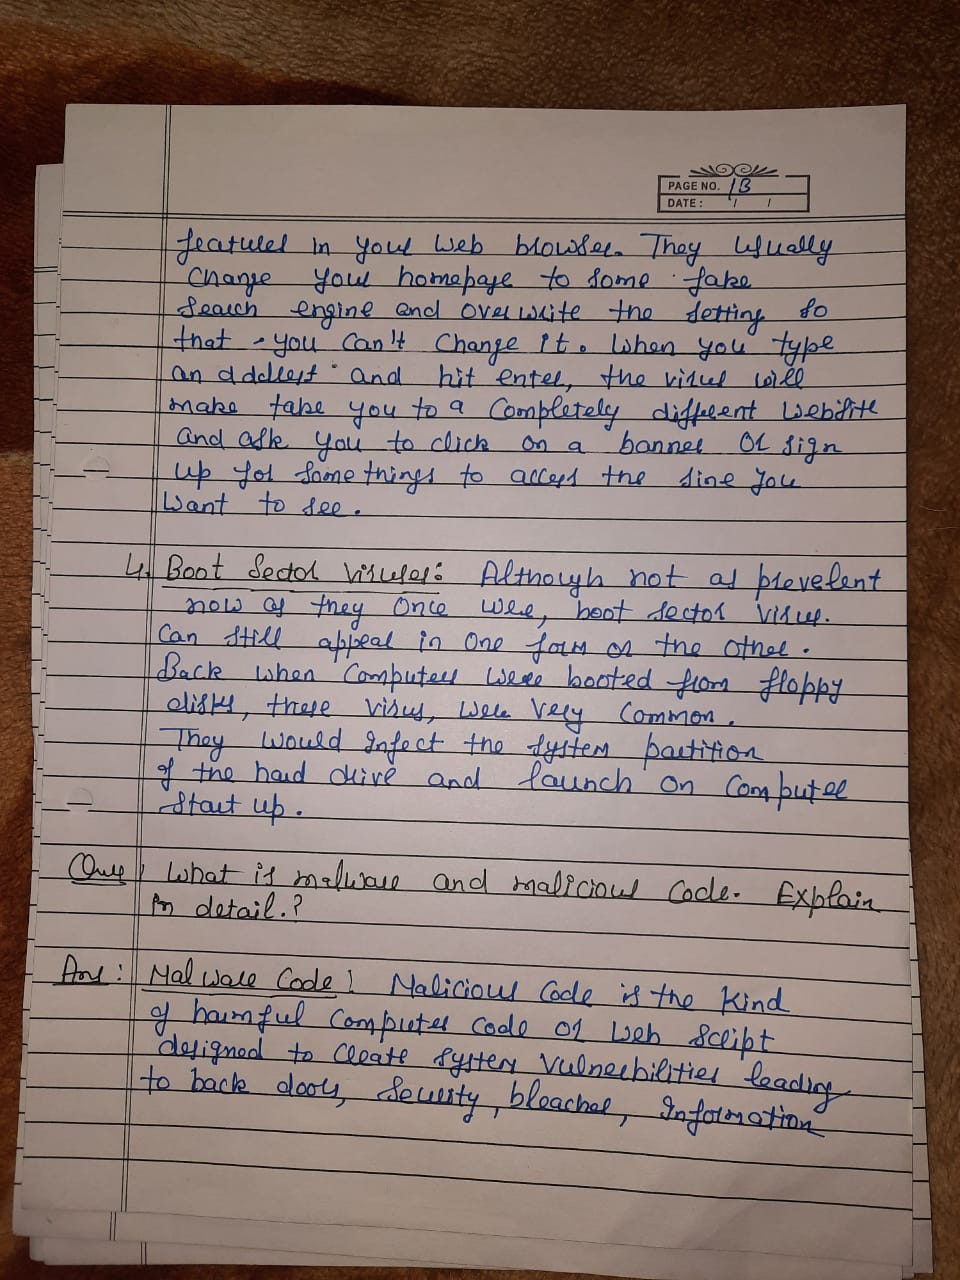 PAGE NO. 1B
DATE: / /
features in your web browser. They usually
change your homepage to some fake
search engine and overwrite the setting so
that you can't change it. When you type
an address and hit enter, the virus will
make take you to a completely different website
and ask you to click on a banner or sign
up for some things to access the sine you
want to see.
4. Boot Sector Viruses: Although not as prevelent
now as they once were, boot sector virus.
Can still appear in one form or the other.
Back when computers were booted from floppy
disks, these virus, were very common.
They would infect the system partition
of the hard drive and launch on computer
start up.
Ques What is malware and malicious code. Explain
in detail.?
Ans: Malware Code! Malicious code is the kind
of harmful computer code or web script
designed to create system vulnerbilities leading
to back doors, security, breaches, information